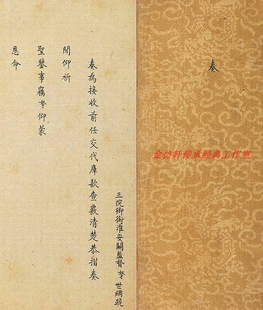 奏
三院卿銜淮安關監督李世綱跪
奏為接收前任交代庫款查數清楚恭摺奏
聞仰祈
聖鑒事竊李仰蒙
恩命
金仿轩传承经典工作室